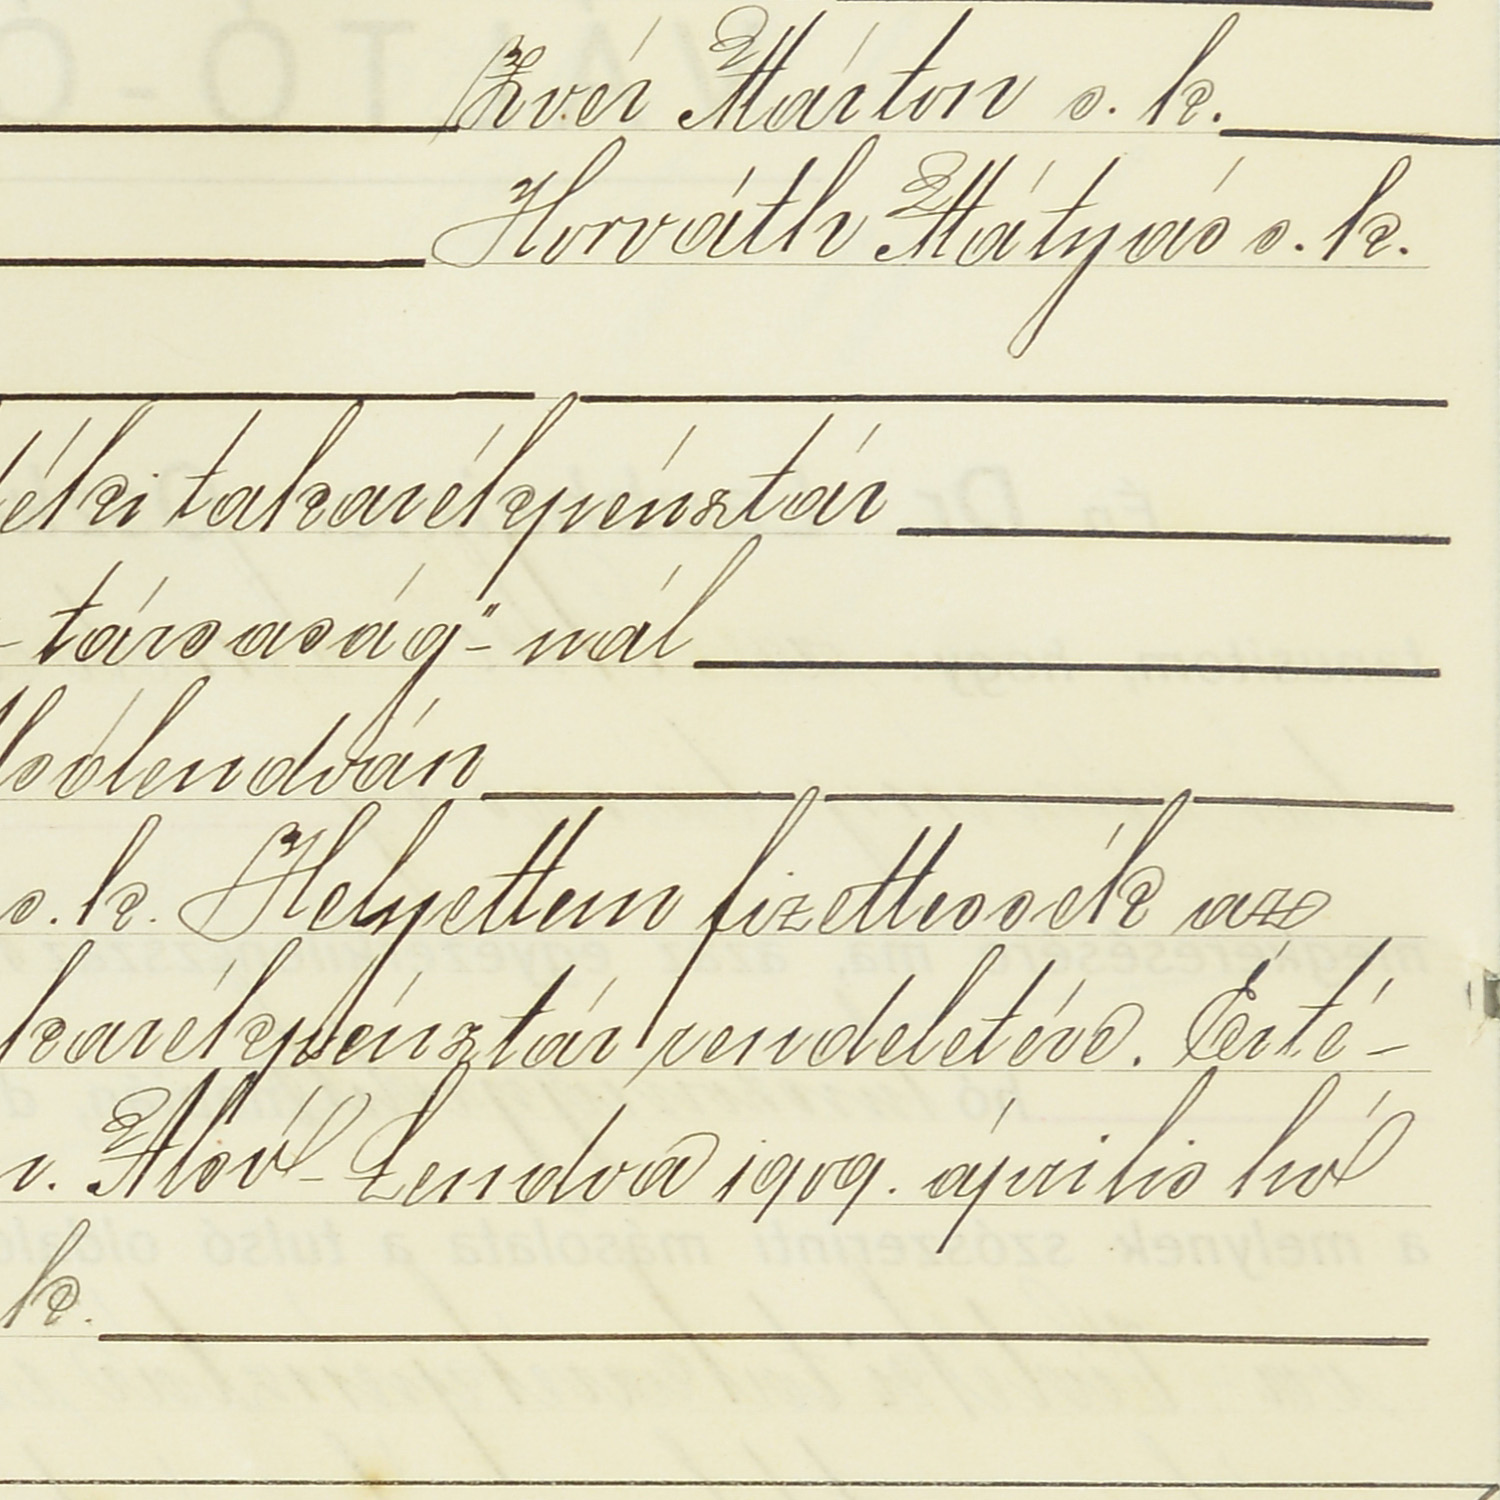 Zvér Márton s. k.
Horváth Mátyás s. k.
éki takarékpénztár
- társaság"- nál
lsólendván
s. k. Helyettem fizettessék az
karékpénztár rendeletére. Érté-
r. Alsó-Lendva 1909. április hó
k.